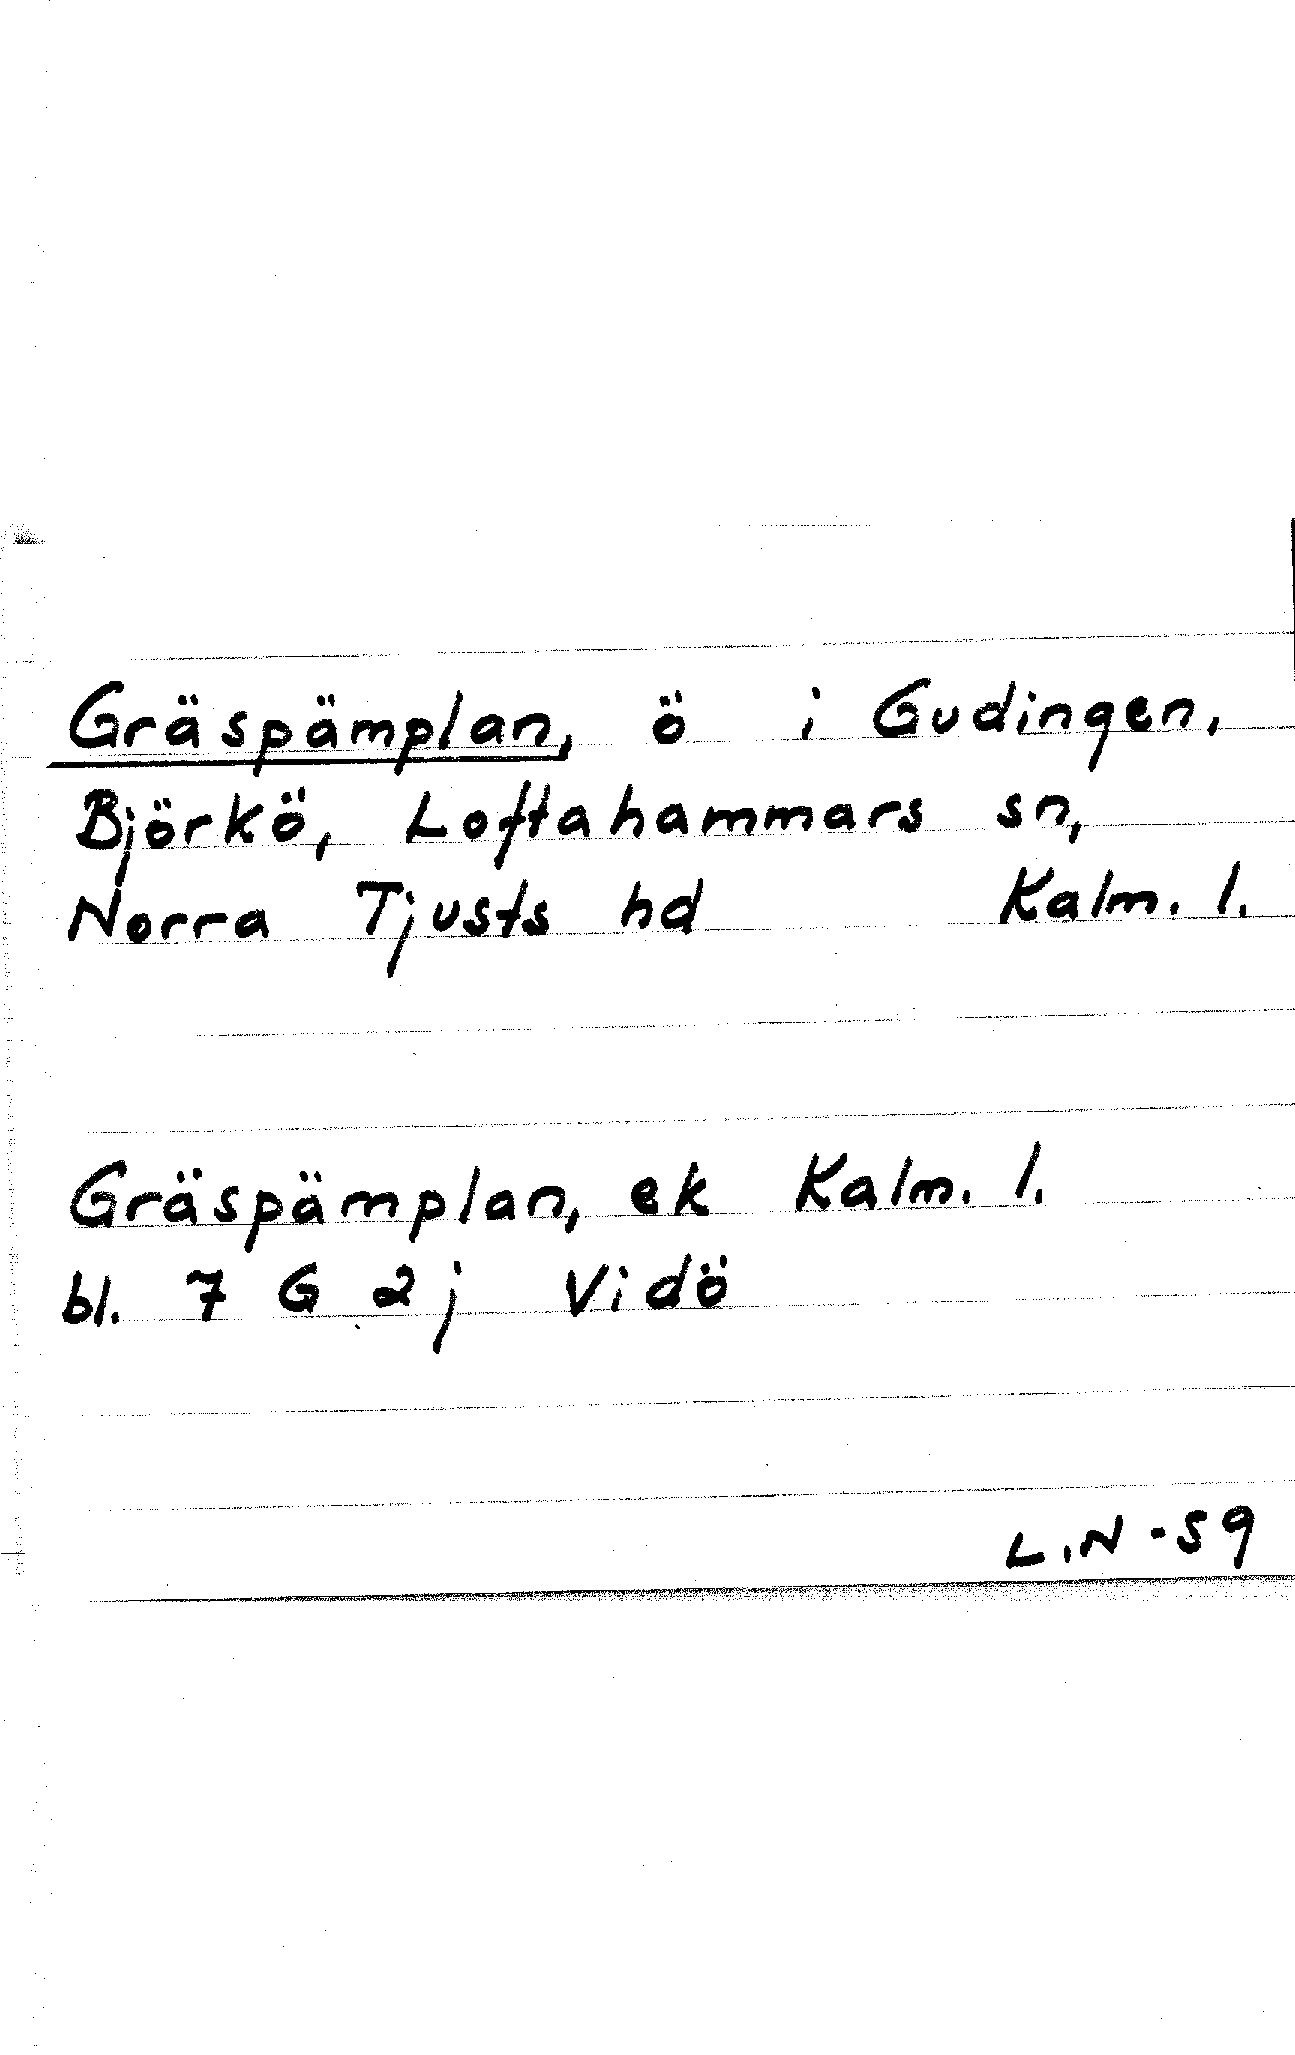 Gräspämplan, ö i Gudingen,
Björkö, Loftahammars sn,
Norra Tjusts hd Kalm. l.
Gräspämplan, ek Kalm. l.
bl. 7 G 2j Vidö
L.N -59